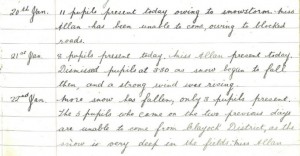 20th Jan. 11 pupils present today owing to snowstorm. Miss
Allan has been unable to come, owing to blocked
roads.
21st Jan. 8 pupils present today. Miss Allan present today.
Dismissed pupils at 3.30 as snow began to fall
then, and a strong wind was rising.
22nd Jan. More snow has fallen, only 3 pupils present.
The 5 pupils who came on the two previous days
are unable to come from District, as the
snow is very deep in the fields. Miss Allan